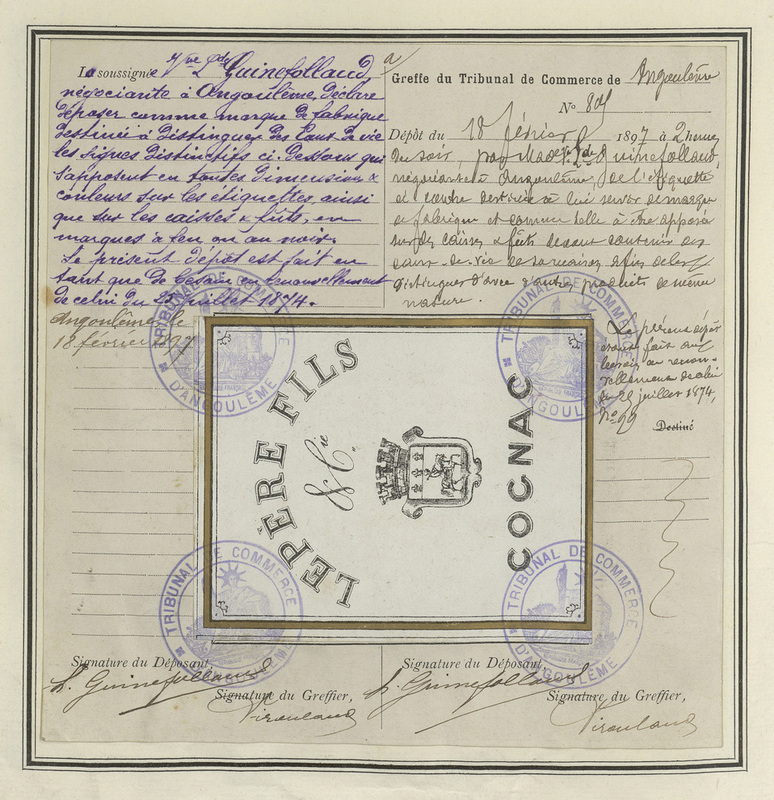 La soussignée Vve Lde Guinefollaud,
négociante à Angoulême, déclare
déposer comme marque de fabrique
destinée à distinguer des Eaux de vie
les signes distinctifs ci-dessous qui
s'apposent en toutes dimensions &
couleurs sur les étiquettes, ainsi
que sur les caisses & fûts, en
marques à feu ou au noir.
Le présent dépôt est fait en
tant que de besoin en renouvellement
de celui du 29 juillet 1874.
Angoulême le
18 février 1897
Greffe du Tribunal de Commerce de Angoulême
No
Dépôt du 18 février 1897 à 2 heures
du soir, par Made Vve Lde Guinefollaud,
négociante à Angoulême, de l'étiquette
ci contre destinée à lui servir de marque
de fabrique et comme telle à être apposée
sur des caisses & fûts devant contenir des
eaux-de-vie de sa maison, afin de les
distinguer d'avec d'autres produits de même
nature.
Le présent dépôt
étant fait au
besoin en renou-
vellement de celui
du 29 juillet 1874,
No 99
Destiné
LEPÈRE FILS
& Cie
COGNAC
TRIBUNAL DE COMMERCE
D'ANGOULÊME
TRIBUNAL DE COMMERCE
D'ANGOULÊME
TRIBUNAL DE COMMERCE
TRIBUNAL DE COMMERCE
D'ANGOULÊME
Signature du Déposant,
L. Guinefollaud
Signature du Greffier,
Signature du Déposant,
L. Guinefollaud
Signature du Greffier,